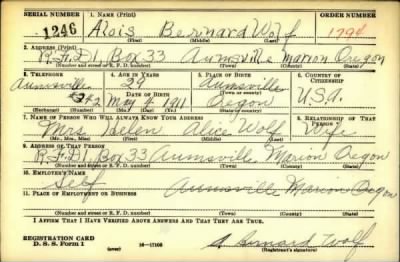 SERIAL NUMBER 1. NAME (Print) ORDER NUMBER
1246 Alois Bernard Wolf 1794
(First) (Middle) (Last)
2. ADDRESS (Print)
R.F.D1 Box 33 Aumsville Marion Oregon
(Number and street or R. F. D. number) (Town) (County) (State)
3. TELEPHONE 4. AGE IN YEARS 5. PLACE OF BIRTH 6. COUNTRY OF CITIZENSHIP
Aumsville 29 Aumsville
DATE OF BIRTH (Town or county) U.S.A.
May 1911 Oregon
(Exchange) (Number) (Mo.) (Day) (Yr.) (State or country)
7. NAME OF PERSON WHO WILL ALWAYS KNOW YOUR ADDRESS 8. RELATIONSHIP OF THAT PERSON
Mrs Helen Alice Wolf Wife
(Mr., Mrs., Miss) (First) (Middle) (Last)
9. ADDRESS OF THAT PERSON
R.F.D1 Box 33 Aumsville Marion Oregon
(Number and street or R. F. D. number) (Town) (County) (State)
10. EMPLOYER'S NAME
Self Aumsville Marion Oregon
11. PLACE OF EMPLOYMENT OR BUSINESS
(Number and street or R. F. D. number) (Town) (County) (State)
I AFFIRM THAT I HAVE VERIFIED ABOVE ANSWERS AND THAT THEY ARE TRUE.
REGISTRATION CARD
D. S. S. Form 1 16—17105 A Bernard Wolf
(Registrant's signature)